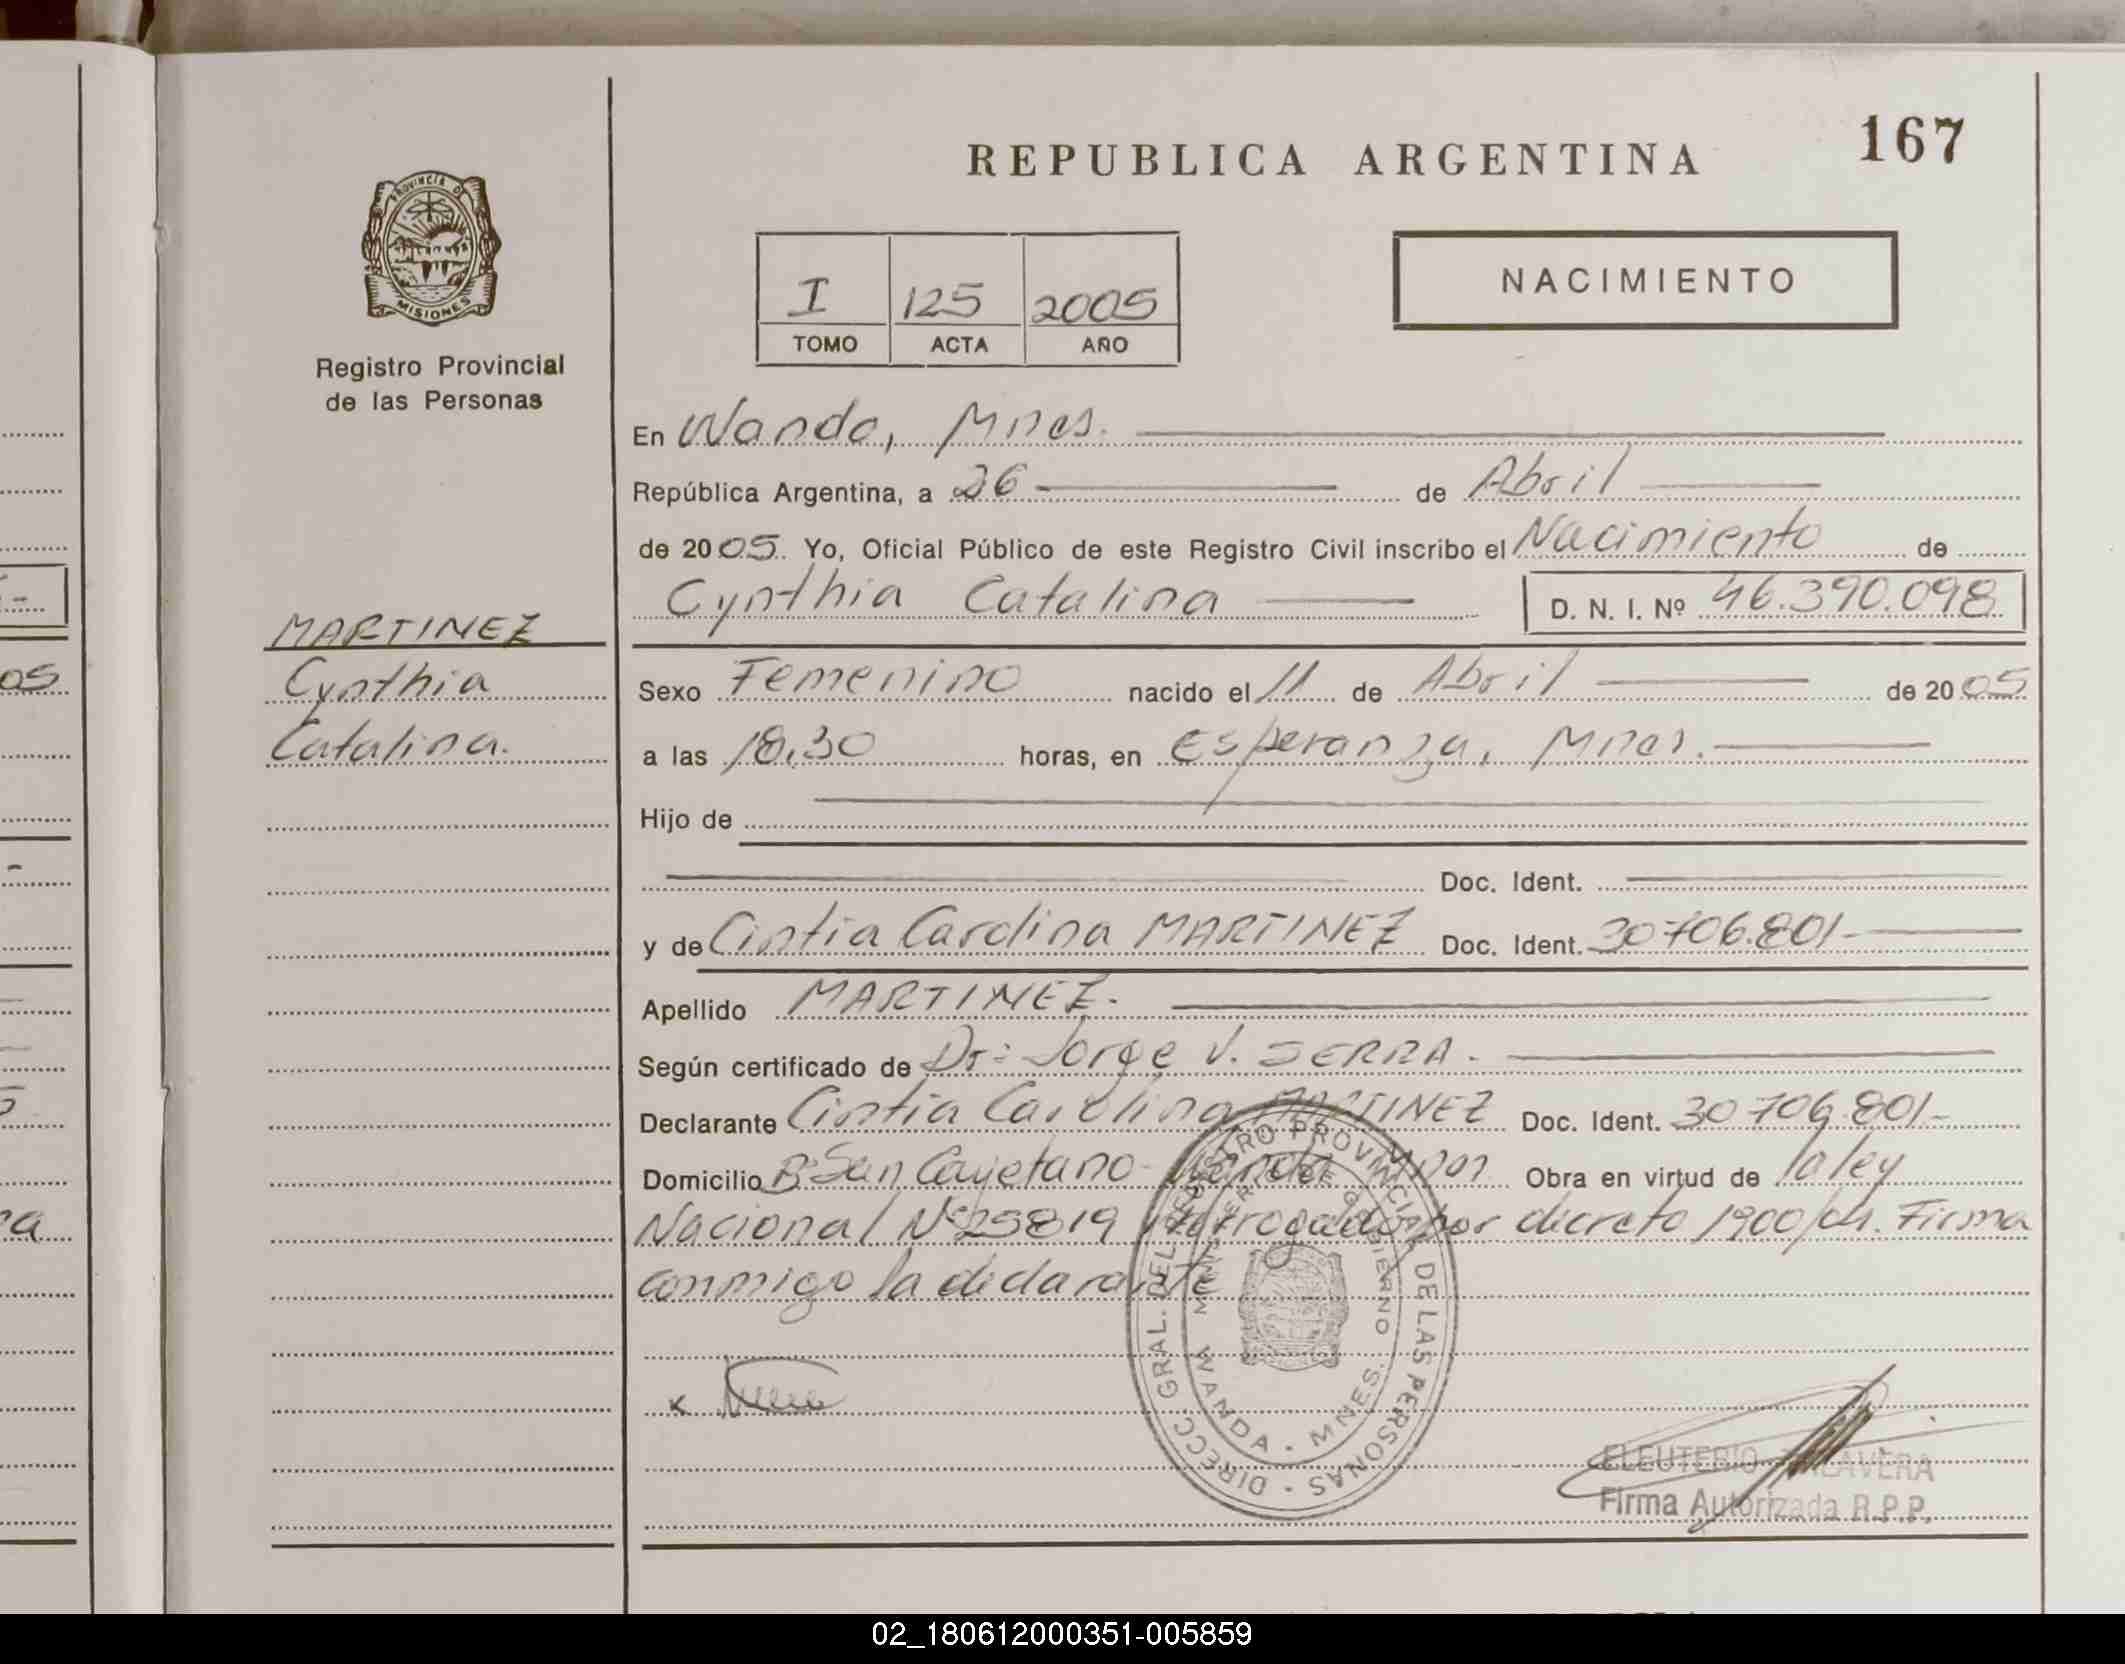 167
REPUBLICA ARGENTINA
PROVINCIA D
MISIONES
Registro Provincial
de las Personas
NACIMIENTO
I 125 2005
TOMO ACTA AÑO
En Wanda, Mnes.
República Argentina, a 26 de Abril
de 2005. Yo, Oficial Público de este Registro Civil inscribo el Nacimiento de
Cynthia Catalina D. N. I. Nº 46.390.098
MARTINEZ
Cynthia
Catalina.
Sexo Femenino nacido el 11 de Abril de 2005
a las 18,30 horas, en Esperanza, Mnes.
Hijo de
Doc. Ident.
y de Cintia Carolina MARTINEZ Doc. Ident. 30706.801
Apellido MARTINEZ.
Según certificado de Dr: Jorge V. SERRA.
Declarante Cintia Carolina MARTINEZ Doc. Ident. 30706.801-
Domicilio Bº San Cayetano - Wanda Mnes. Obra en virtud de la ley
Nacional Nº 25819 prorrogado por decreto 1900/04. Firma
conmigo la declarante
DIRECC GRAL. DEL REGISTRO PROVINCIAL DE LAS PERSONAS
MINISTERIO DE GOBIERNO
WANDA - MNES.
ELEUTERIO TALAVERA
Firma Autorizada R.P.P.
os
ra
02_180612000351-005859